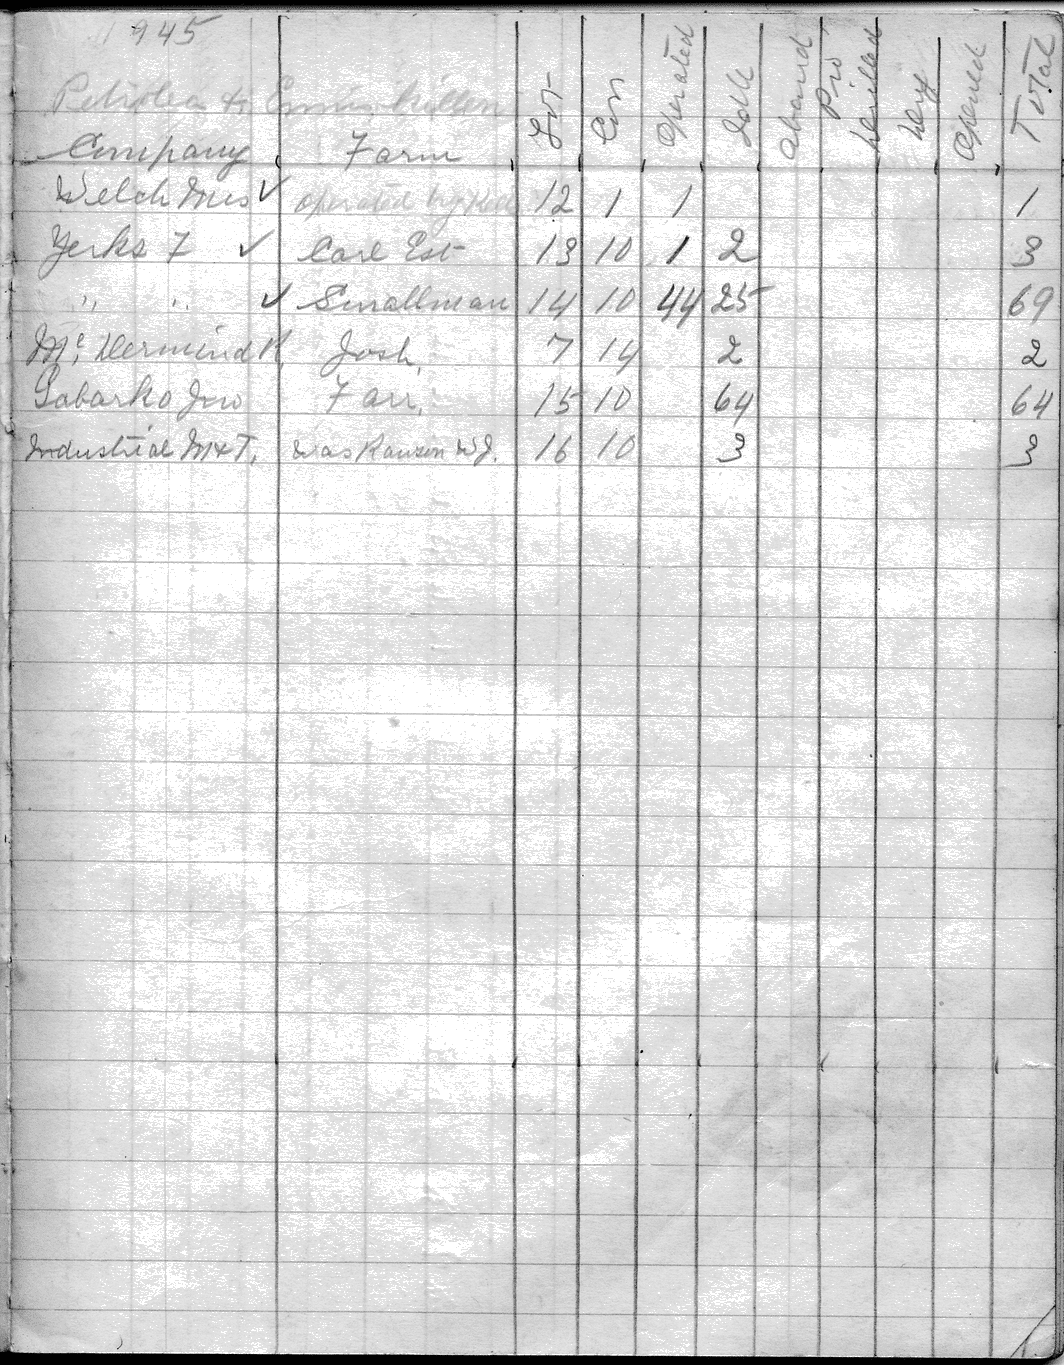 1945
Petrolea & Enniskillen
Company Farm Lot Con Operated Idle Aband Pro Drilled Dry Opened Total
Welch Mrs ✓ operated by 12 1 1 1
Yerks F ✓ Carl Est 13 10 1 2 3
" " ✓ Smallman 14 10 44 25 69
Mc Dermind R. Josh, 7 14 2 2
Sabarko Jno Farr, 15 10 64 64
Industrial M&T, was Ranson W.J. 16 10 3 3